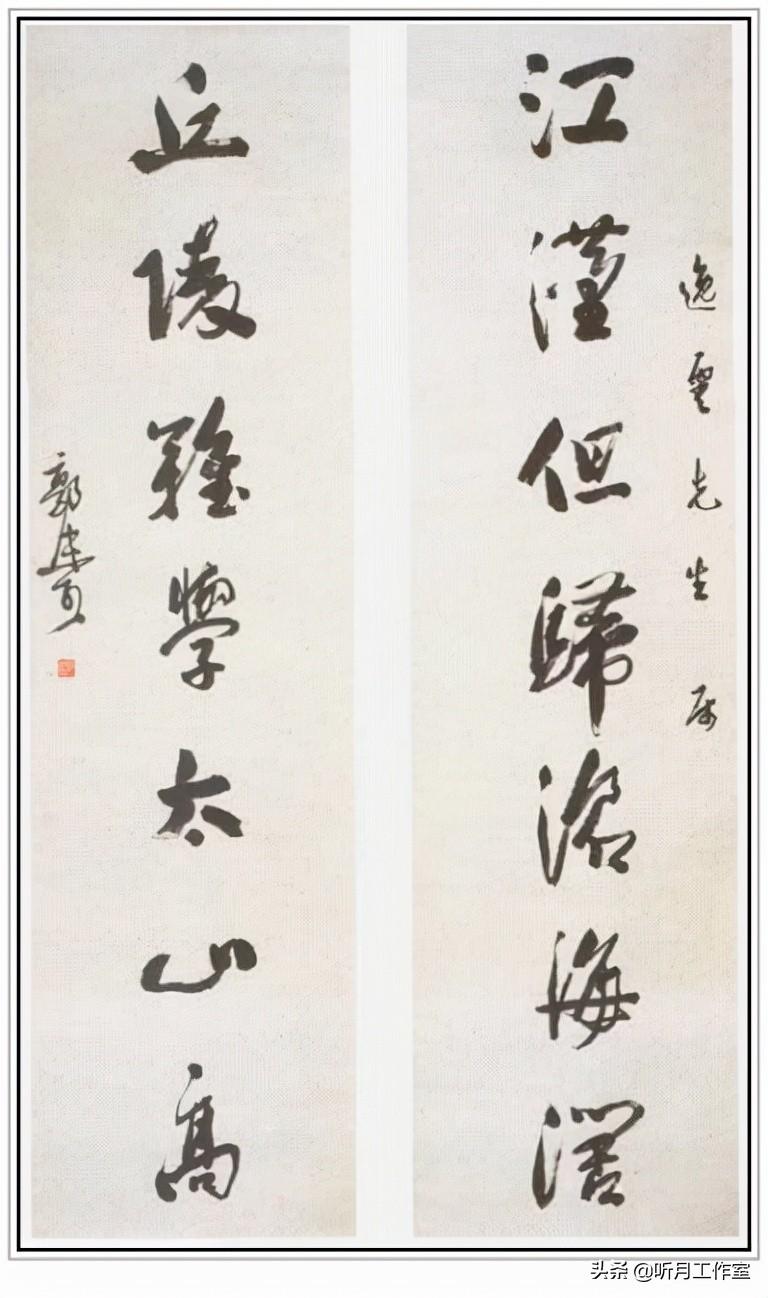 逸雲先生 属
江漢但歸滄海闊
丘陵難學太山高
郭
头条 @听月工作室